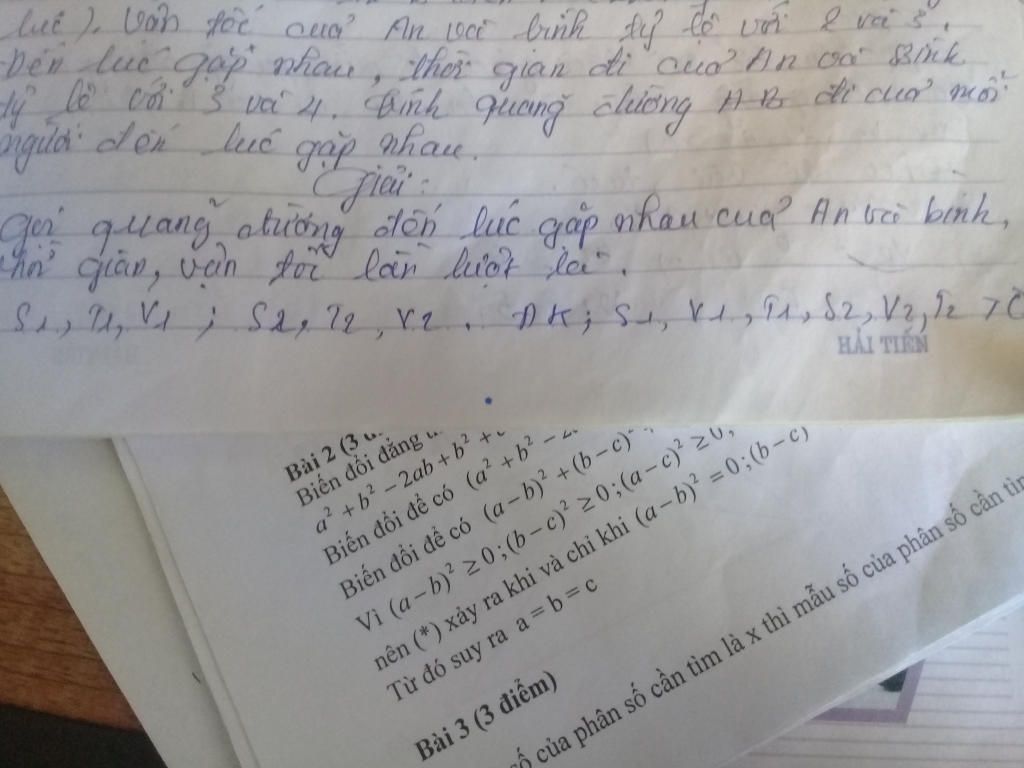 lúc). Vận tốc của An và bình tỷ lệ với 2 và 3.
Đến lúc gặp nhau, thời gian đi của An và Bình
tỷ lệ với 3 và 4. tính quãng đường AB đi của mỗi
người đến lúc gặp nhau.
Giải:
Gọi quãng đường đến lúc gặp nhau của An và bình,
thời gian, vận tốc lần lượt là.
S1, T1, V1 ; S2, T2, V2. ĐK; S1, V1, T1, S2, V2, T2 > 0
HẢI TIẾN
Bài 2 (3
Biến đổi đẳng
a² + b² − 2ab + b² +
Biến đổi để có (a² + b² −
Biến đổi để có (a − b)² + (b − c)²
Vì (a − b)² ≥ 0 ; (b − c)² ≥ 0 ; (a − c)² ≥ 0;
nên (*) xảy ra khi và chỉ khi (a − b)² = 0 ; (b − c)
Từ đó suy ra a = b = c
Bài 3 (3 điểm)
số của phân số cần tìm là x thì mẫu số của phân số cần tìm